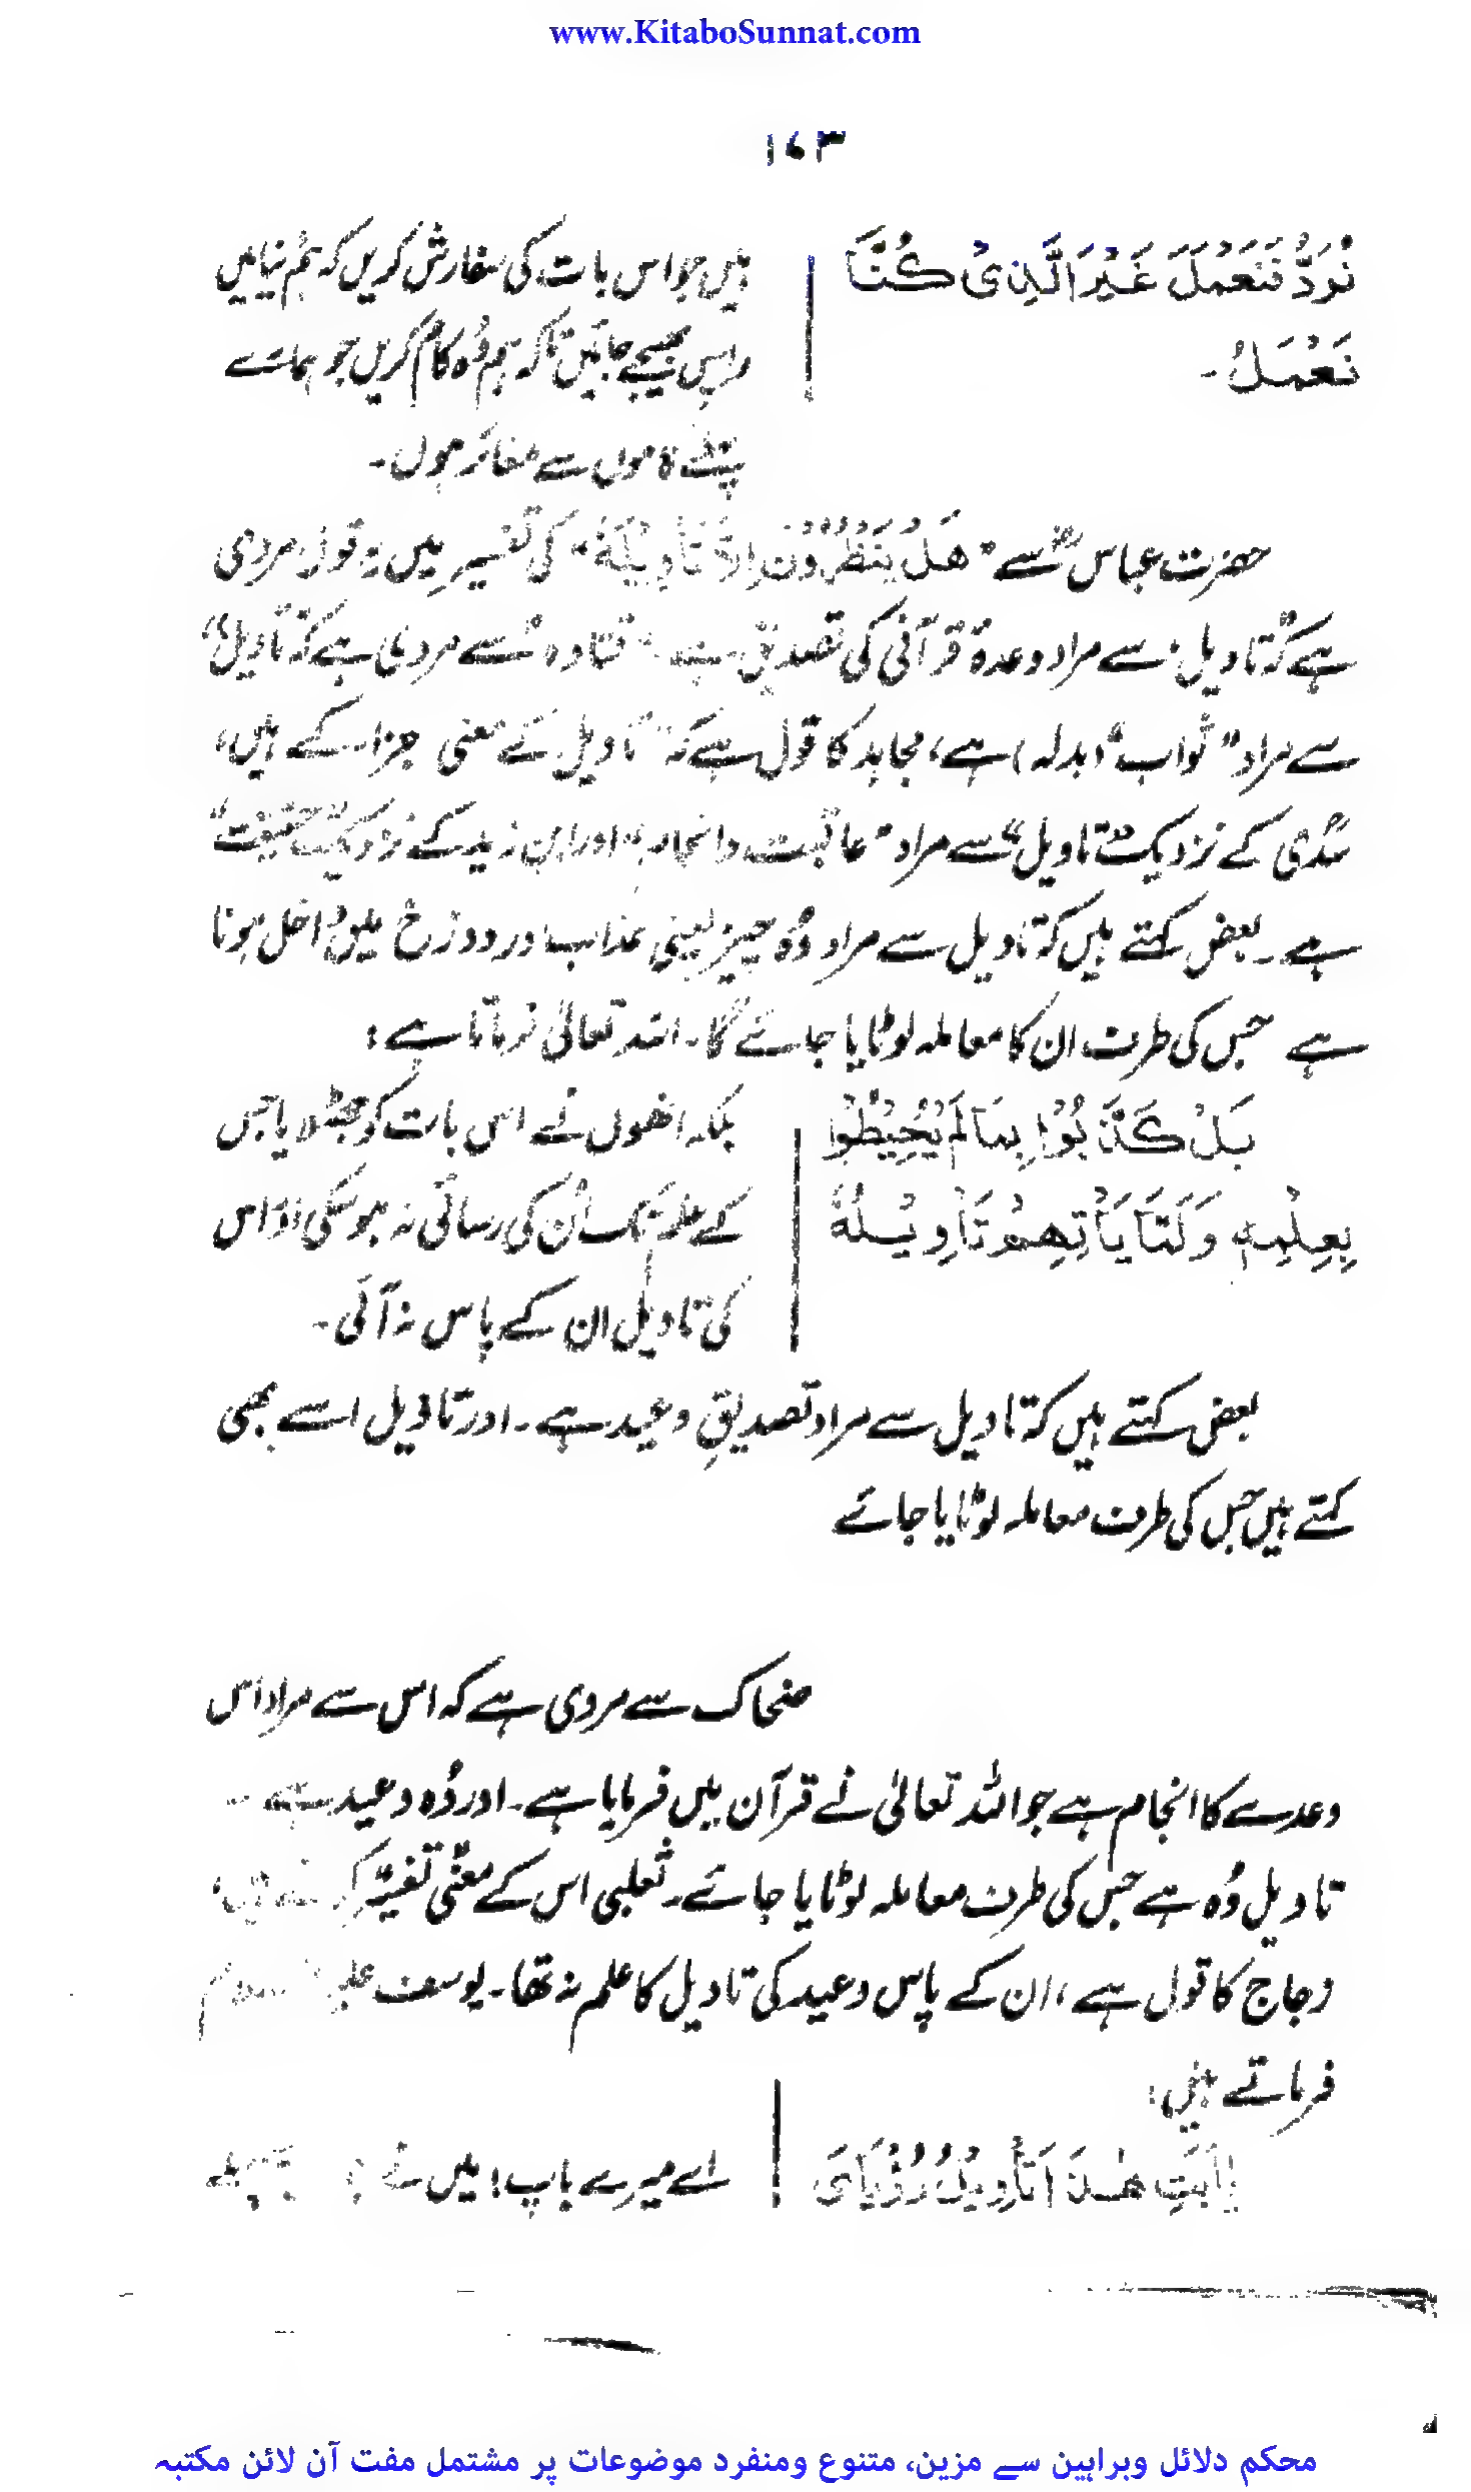 www.KitaboSunnat.com
۱۶۳
نُرَدُّ فَنَعْمَلَ غَيْرَ الَّذِیْ كُنَّا
نَعْمَلُ۔
ہیں جو اس بات کی سفارش کریں کہ ہم دنیا میں
واپس بھیجے جائیں تاکہ ہم وُہ کام کریں جو ہمارے
پہلے کاموں سے مغائر ہوں۔
حضرت عباسؓ سے ”هَلْ يَنْظُرُوْنَ اِلَّا تَأْوِيْلَهٗ“ کی تفسیر میں یہ قول مروی
ہے کہ ”تاویل“ سے مراد وعدۂ قرآنی کی تصدیق ہے۔ قتادہؒ سے مروی ہے کہ ”تاویل“
سے مراد ”ثواب“ (بدلہ) ہے، مجاہد کا قول ہے کہ ”تاویل“ کے معنی جزا کے ہیں،
سُدّی کے نزدیک ”تاویل“ سے مراد ”عاقبت و انجام“ اور ابن زید کے نزدیک ”حقیقت“
ہے۔ بعض کہتے ہیں کہ تاویل سے مراد وُہ چیز یعنی عذاب اور دوزخ میں داخل ہونا
ہے جس کی طرف ان کا معاملہ لوٹایا جائے گا۔ اللہ تعالیٰ فرماتا ہے:
بَلْ كَذَّبُوْا بِمَا لَمْ يُحِيْطُوْا
بِعِلْمِهٖ وَلَمَّا يَأْتِهِمْ تَأْوِيْلُهٗ
بلکہ انھوں نے اس بات کو جھٹلایا جس
کے علم تک اُن کی رسائی نہ ہو سکی اور اس
کی تاویل ان کے پاس نہ آئی۔
بعض کہتے ہیں کہ تاویل سے مراد تصدیقِ وعید ہے۔ اور تاویل اسے بھی
کہتے ہیں جس کی طرف معاملہ لوٹایا جائے
ضحاک سے مروی ہے کہ اس سے مراد اس
وعدے کا انجام ہے جو اللہ تعالیٰ نے قرآن میں فرمایا ہے۔ اور وُہ وعید ہے۔
تاویل وُہ ہے جس کی طرف معاملہ لوٹایا جائے۔ ثعلبی اس کے معنی تفسیر کرتے ہیں،
زجاج کا قول ہے، ان کے پاس وعید کی تاویل کا علم نہ تھا۔ یوسف علیہ السلام
فرماتے ہیں:
يٰاَبَتِ هٰذَا تَأْوِيْلُ رُؤْيَایَ
اے میرے باپ! میں نے پہلے
محکم دلائل وبراہین سے مزین، متنوع ومنفرد موضوعات پر مشتمل مفت آن لائن مکتبہ